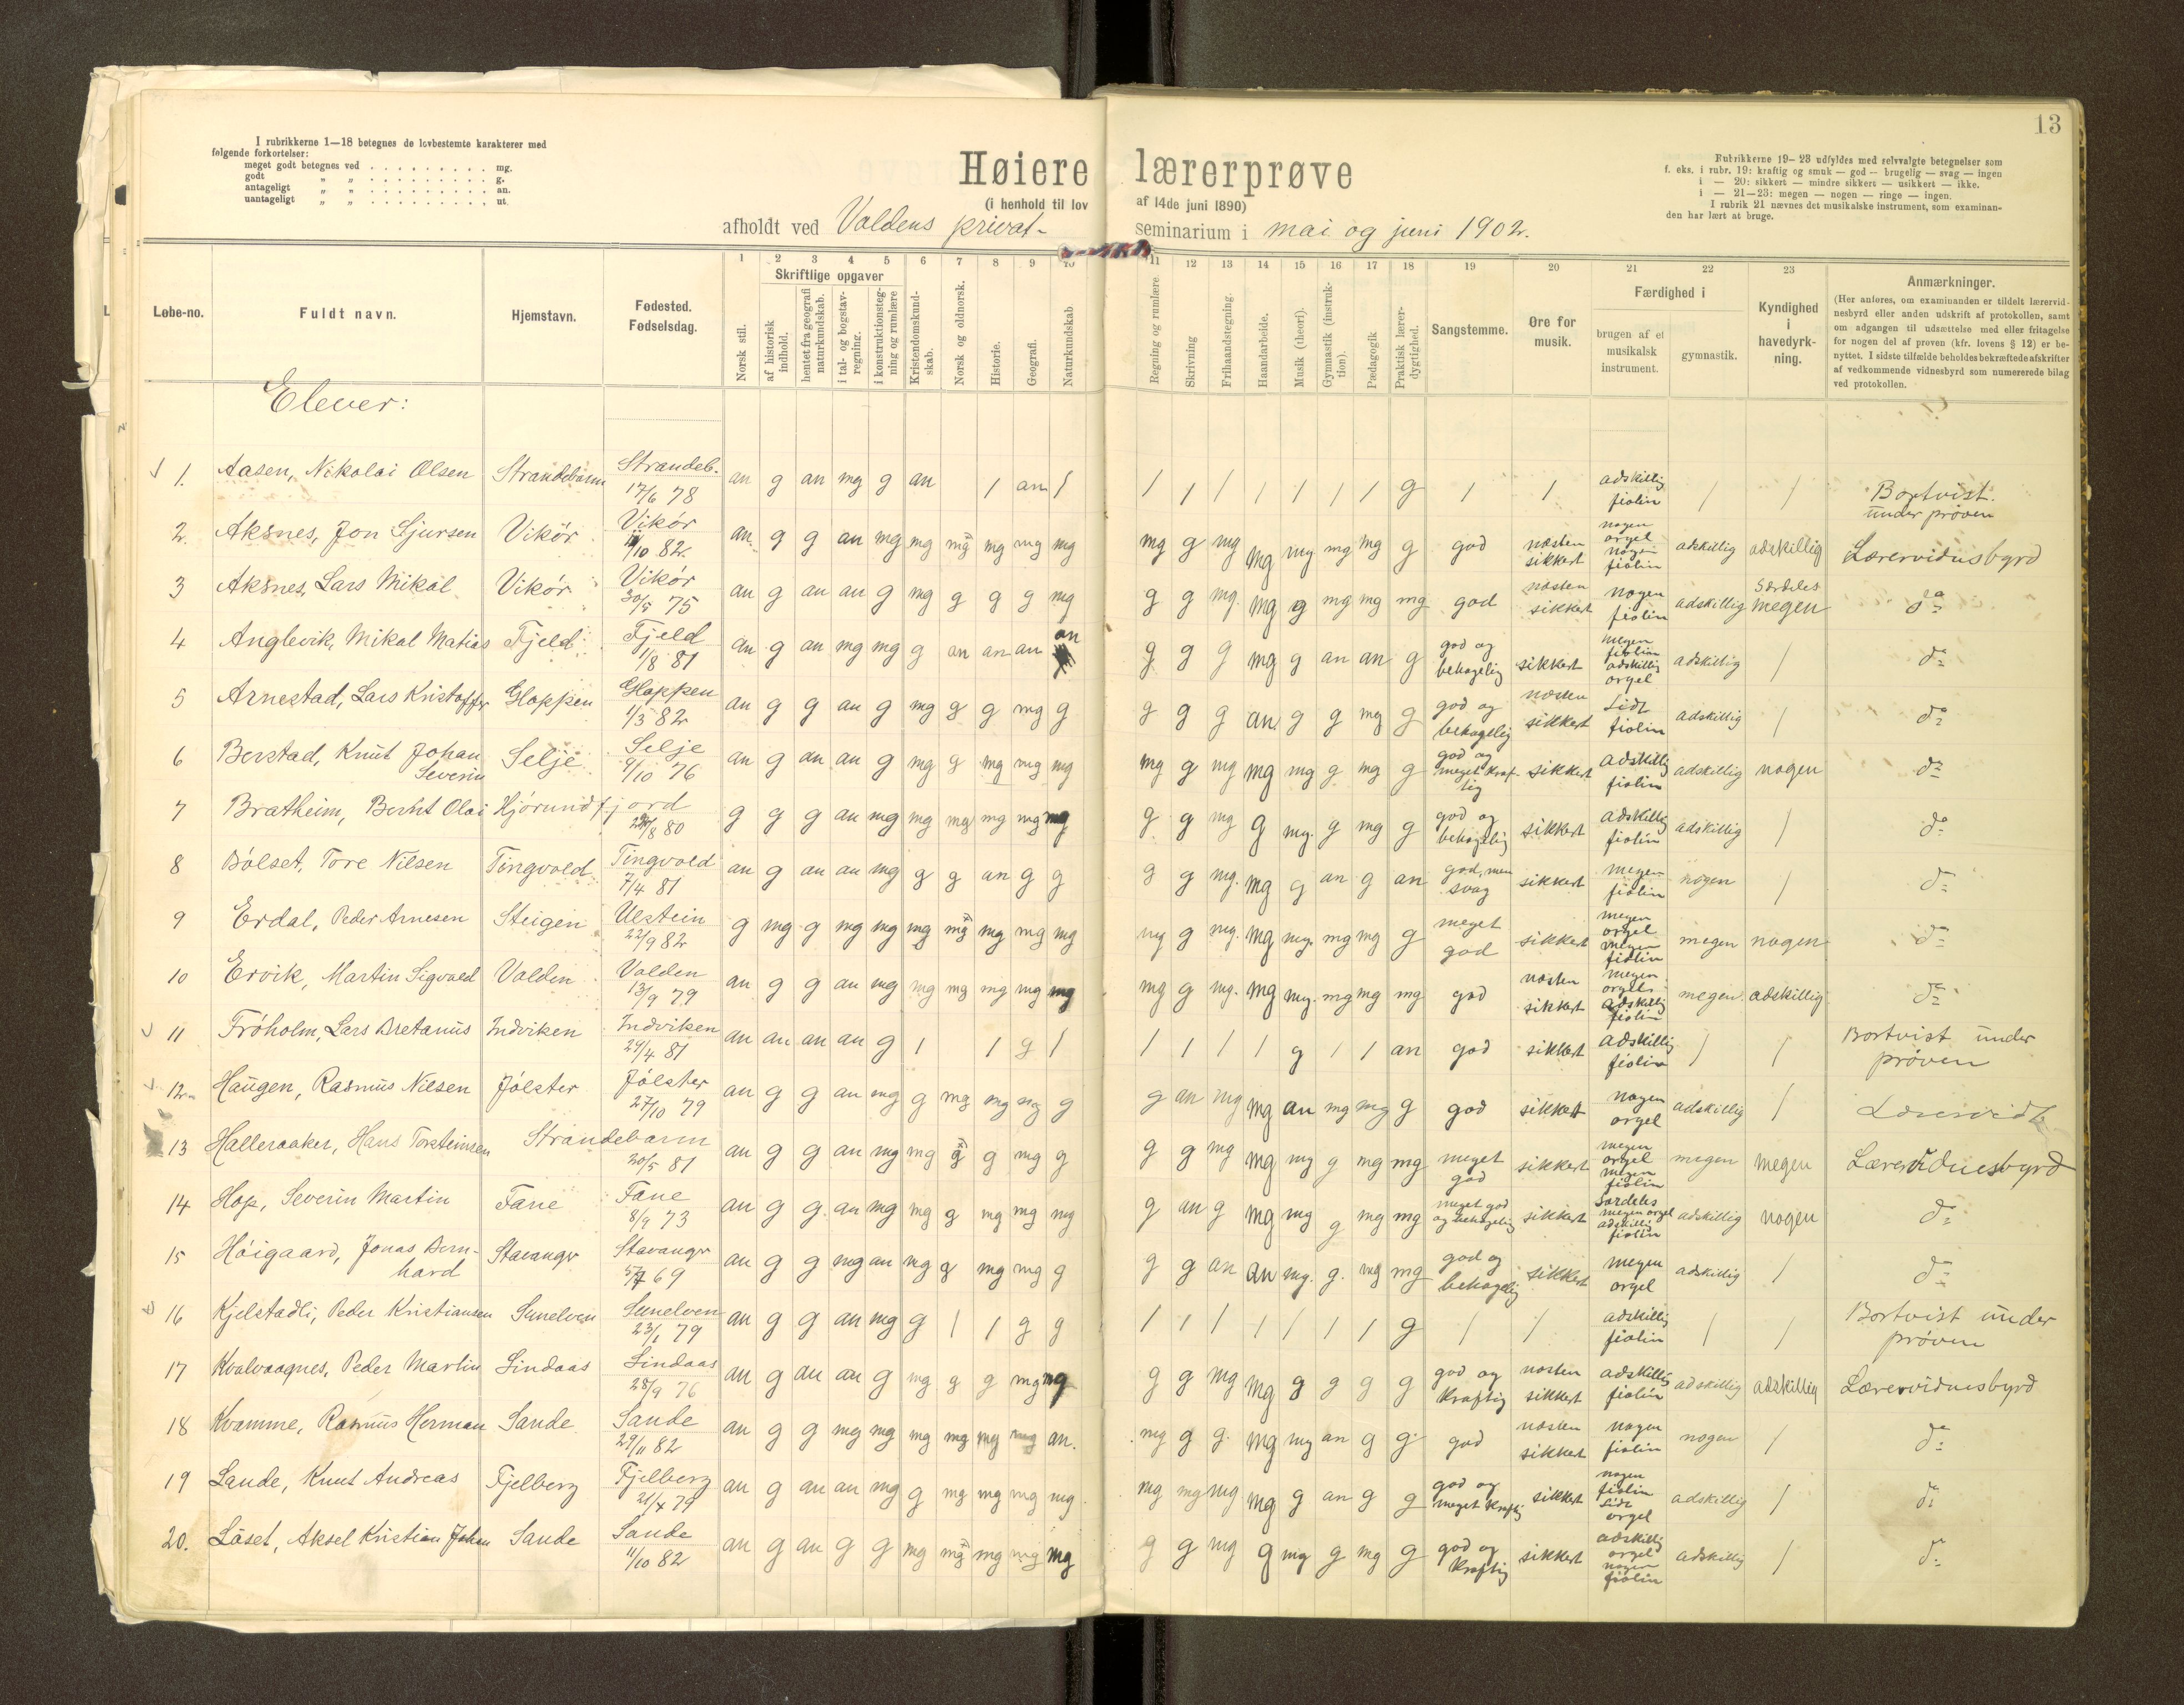 13
I rubrikkerne 1—18 betegnes de lovbestemte karakterer med
følgende forkortelser:
meget godt betegnes ved . . . . . . . . . . mg.
godt „ „ . . . . . . . . . . g.
antageligt „ „ . . . . . . . . . . an.
uantageligt „ „ . . . . . . . . . . ut.
Høiere lærerprøve
(i henhold til lov af 14de juni 1890)
afholdt ved Voldens privat- seminarium i mai og juni 1902.
Rubrikkerne 19–23 udfyldes med selvvalgte betegnelser som
f. eks. i rubr. 19: kraftig og smuk — god — brugelig — svag — ingen
i — 20: sikkert — mindre sikkert — usikkert — ikke.
i — 21—23: megen — nogen — ringe — ingen.
I rubrik 21 nævnes det musikalske instrument, som examinan-
den har lært at bruge.
Løbe-no. Fuldt navn. Hjemstavn. Fødested. Fødselsdag.
Skriftlige opgaver
1 Norsk stil.
2 af historisk indhold.
3 hentet fra geografi naturkundskab.
4 i tal- og bogstav-regning.
5 i konstruktionsteg-ning og rumlære
6 Kristendomskund-skab.
7 Norsk og oldnorsk.
8 Historie.
9 Geografi.
10 Naturkundskab
11 Regning og rumlære
12 Skrivning
13 Frihaandstegning.
14 Haandarbeide.
15 Musik (theori).
16 Gymnastik (instruk-tion).
17 Pædagogik
18 Praktisk lærer-dygtighed.
19 Sangstemme.
20 Øre for musik.
Færdighed i
21 brugen af et musikalsk instrument.
22 gymnastik.
23 Kyndighed i havedyrk-ning.
Anmærkninger.
(Her anføres, om examinanden er tildelt lærervid-
nesbyrd eller anden udskrift af protokollen, samt
om adgangen til udsættelse med eller fritagelse
for nogen del af prøven (kfr. lovens § 12) er be-
nyttet. I sidste tilfælde beholdes bekræftede afskrifter
af vedkommende vidnesbyrd som numererede bilag
ved protokollen.
Elever:
1. Aasen, Nikolai Olsen Strandebarm Strandeb. 17/6 78 an g an mg g an / an / / / / / / / / g / / adskillig fiolin / / Bortvist under prøven
2. Aksnes, Jon Sjursen Vikør Vikør /10 82 an. g g an mg mg mg mg mg mg mg g mg mg mg mg mg g god næsten sikkert nogen orgel nogen fiolin adskillig adskillig Lærervidnesbyrd
3 Aksnes, Lars Mikal Vikør Vikør 30/5 75 an g an an g mg g g g mg g g mg. mg g mg mg mg god næsten sikkert nogen fiolin adskillig Særdeles megen do
4 Anglevik, Mikal Matias Fjeld Fjeld 1/8 81 an g an mg mg g an an an an g g g mg g an an g god og behagelig sikkert megen fiolin adskillig orgel adskillig / do
5 Arnestad, Lars Kristoffer Gloppen Gloppen 1/3 82 an g g an g mg g g mg g g g g an g g mg g god og behagelig næsten sikkert Lidt fiolin adskillig / do
6 Berstad, Knut Johan Severin Selje Selje 9/10 76 an g an an g mg g mg mg mg mg g mg mg mg g mg g god og meget kraftig sikkert adskillig fiolin adskillig nogen do
7 Bratheim, Bernt Olai Hjørundfjord /8 80 g g g an mg mg mg mg mg mg g g mg g mg. g mg g god og behagelig sikkert adskillig fiolin adskillig / do
8 Bølset, Tore Nilsen Tingvold Tingvold 7/4 81 an g an an mg g g an g g g g mg. mg g an g an god, men svag sikkert megen fiolin nogen / do
9 Erdal, Peder Arnesen Steigen Ulstein 22/9 82 g mg g mg mg mg mg mg mg mg mg g mg. mg mg. mg mg g meget god sikkert megen orgel megen fiolin megen nogen do
10 Ervik, Martin Sigvald Volden Volden 13/9 79 an g g an mg mg mg mg mg mg mg g mg. mg mg. mg mg mg god næsten sikkert megen orgel adskillig fiolin megen adskillig do
11 Frøholm, Lars Bretanus Indviken Indviken 29/4 81 an an an an g / / g / / / / / g / / an god sikkert adskillig fiolin / / Bortvist under prøven
12 Haugen, Rasmus Nilsen Jølster Jølster 27/10 79 an g g an mg g mg mg mg g g an mg mg an mg mg g god sikkert nogen orgel adskillig /
13 Halleraaker, Hans Torsteinsen Strandebarm 20/5 81 an g g an mg mg g g mg g g g mg mg mg g mg mg meget god sikkert megen orgel megen fiolin megen megen Lærervidnesbyrd
14 Hop, Severin Martin Fane Fane 8/9 73 an g g. an mg mg g mg mg mg g an g mg mg g mg mg meget god og behagelig sikkert særdeles megen orgel adskillig fiolin adskillig nogen do
15 Høigaard, Jonas Bernhard Stavanger Stavanger 69 an g g mg an mg g mg mg g g g an an mg. g. mg mg god og behagelig sikkert megen orgel adskillig / do
16 Kjelstadli, Peder Kristiansen Sunelven Sunelven 23/1 79 an g g an mg g / / g g / / / / / / / g / / adskillig fiolin / / Bortvist under prøven
17 Kvalvaagnes, Peder Martin Lindaas Lindaas 28/9 76 an g an an g mg g g mg mg g g mg mg g g g g god og kraftig næsten sikkert adskillig fiolin adskillig adskillig Lærervidnesbyrd
18 Kvamme, Rasmus Herman Sande Sande 29/11 82 an g g mg mg mg mg mg mg an. mg g g. mg mg an g g god næsten sikkert nogen fiolin nogen / do
19 Lande, Knut Andreas Fjelberg Fjelberg 21/ 79 an g an an mg g mg mg mg mg mg mg mg mg g an g g god og meget kraftig sikkert nogen fiolin Lidt orgel adskillig / do
20. Låset, Aksel Kristian Johan Sande Sande 11/10 82 an g an g g mg mg mg mg mg g g mg g mg g mg g god og kraftig sikkert adskillig orgel nogen fiolin adskillig / do